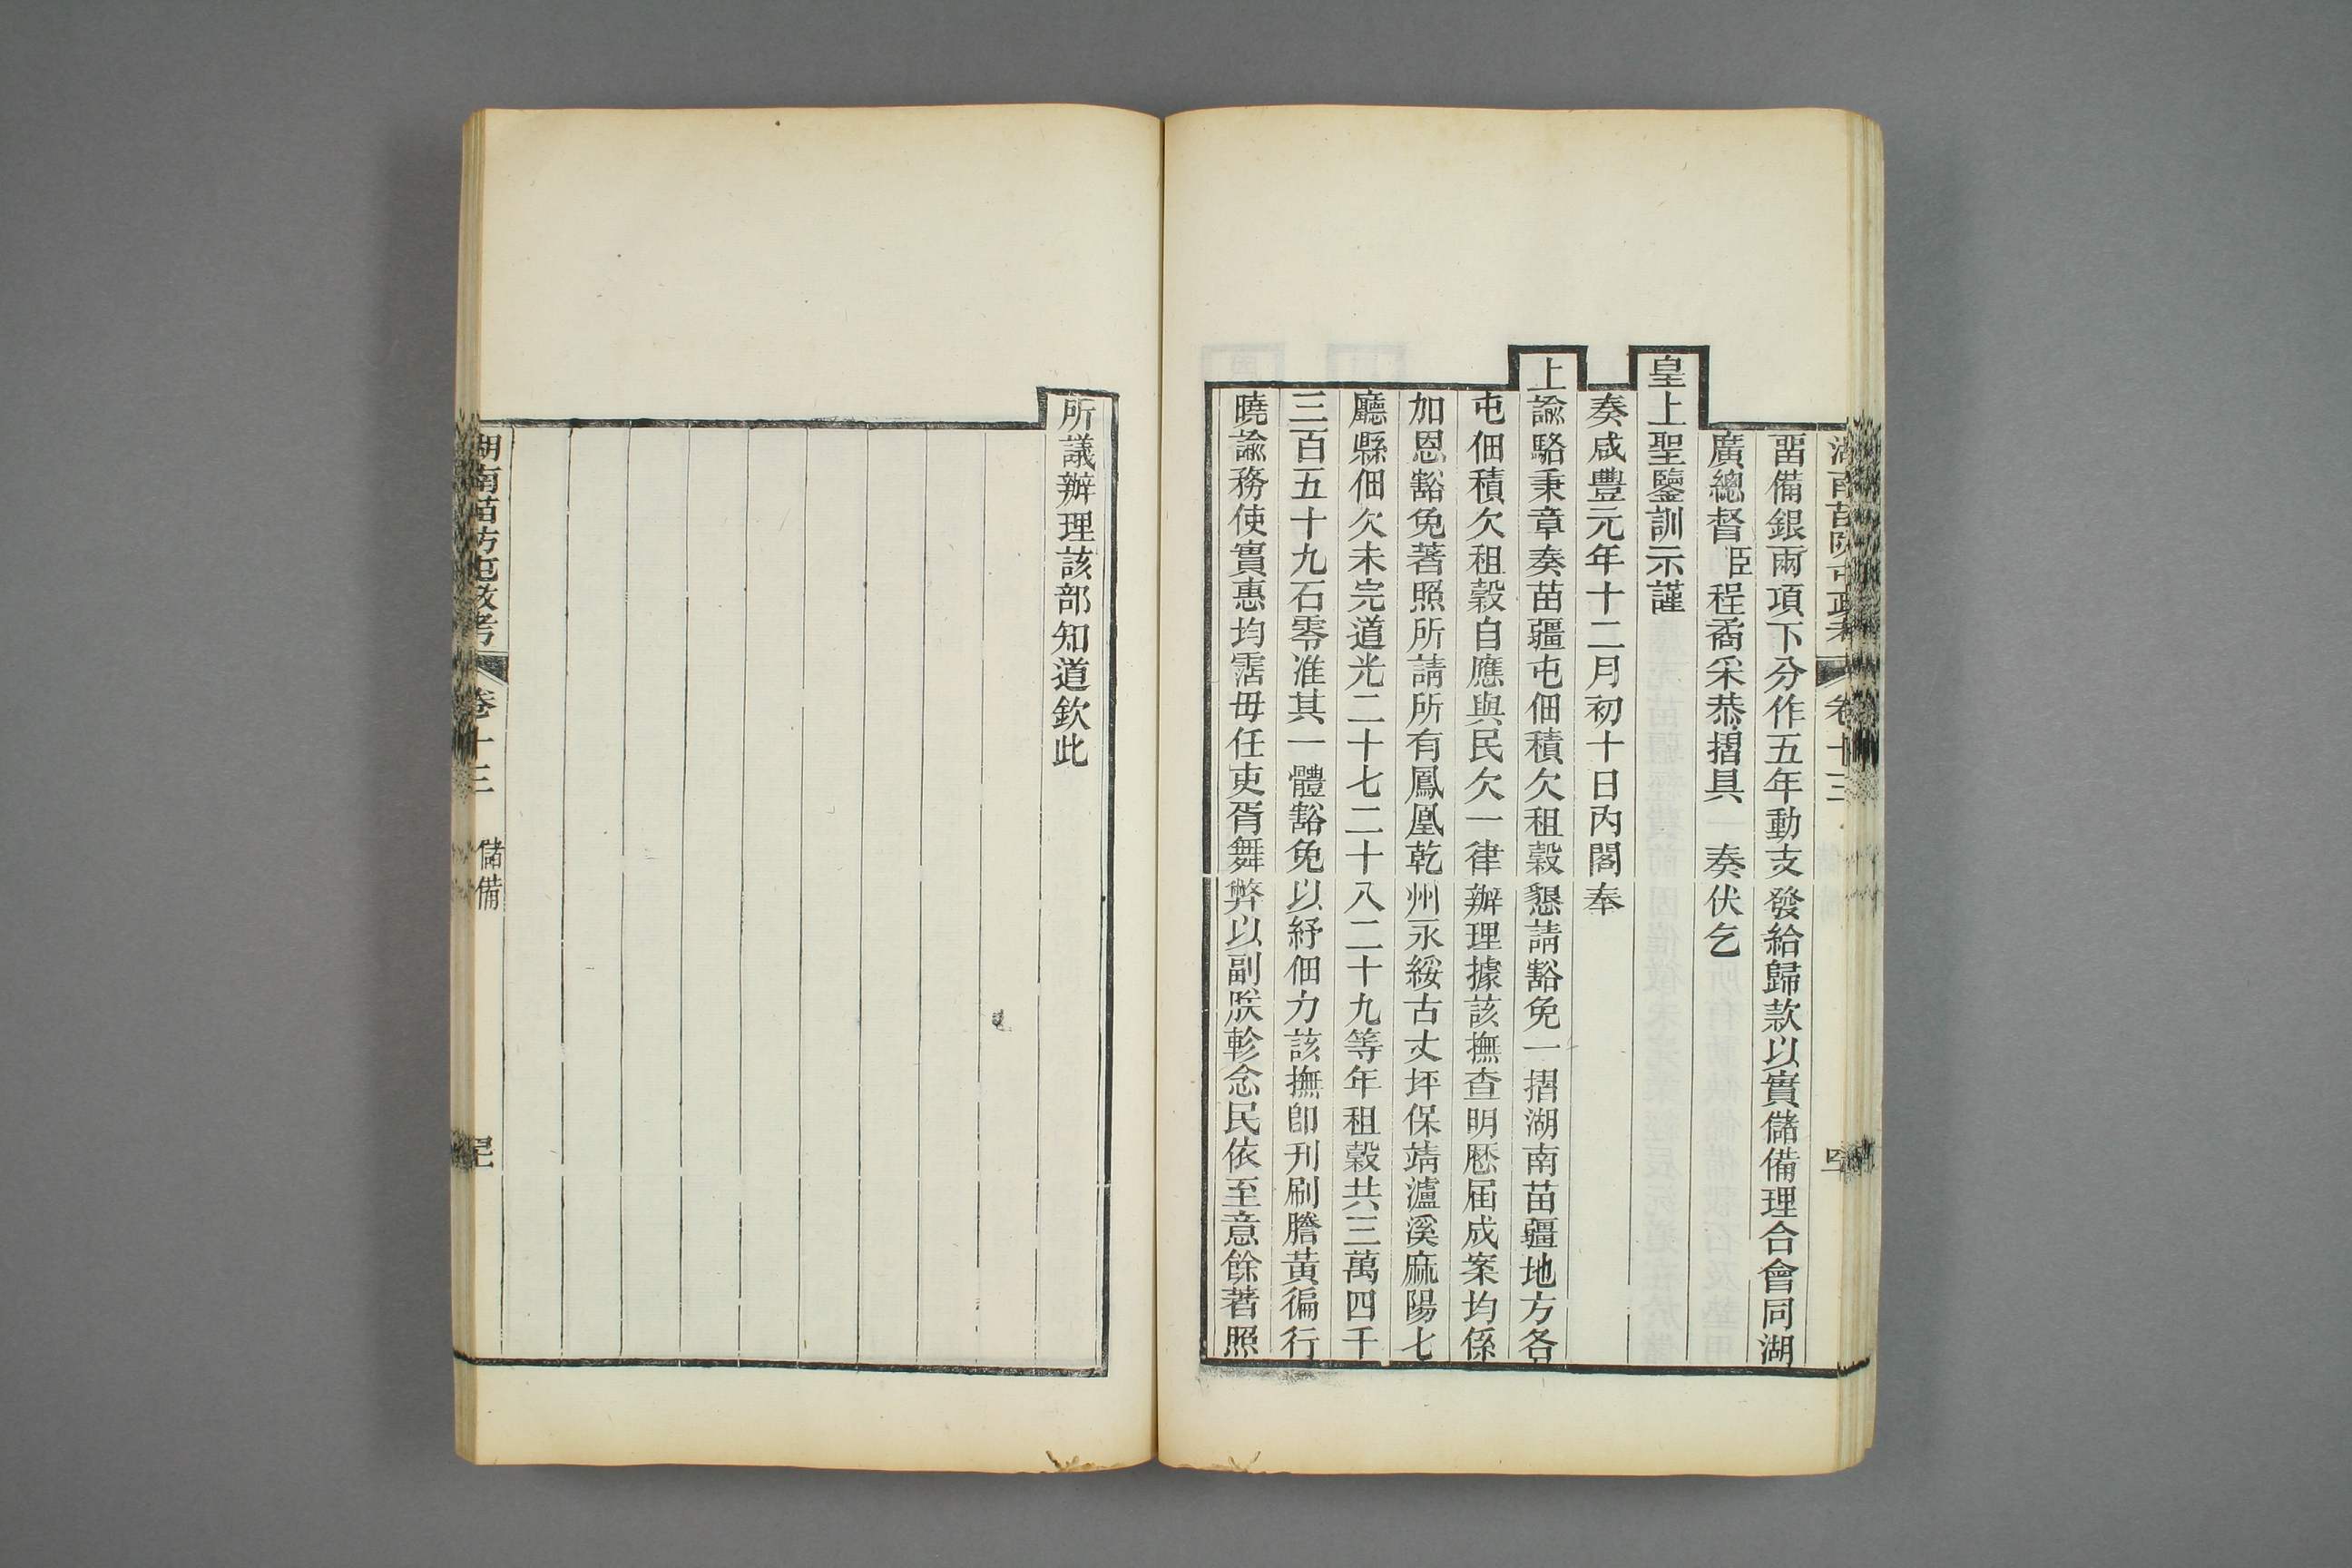 湖南苗防屯政考 卷十三
畱備銀兩項下分作五年動支發給歸款以實儲備理合會同湖
廣總督臣程矞采恭摺具 奏伏乞
皇上聖鑒訓示謹
奏咸豐元年十二月初十日內閣奉
上諭駱秉章奏苗疆屯佃積欠租穀懇請豁免一摺湖南苗疆地方各
屯佃積欠租穀自應與民欠一律辦理據該撫查明歷屆成案均係
加恩豁免著照所請所有鳳凰乾州永綏古丈坪保靖瀘溪麻陽七
廳縣佃欠未完道光二十七二十八二十九等年租穀共三萬四千
三百五十九石零准其一體豁免以紓佃力該撫卽刊刷謄黃徧行
曉諭務使實惠均霑毋任吏胥舞弊以副朕軫念民依至意餘著照
所議辦理該部知道欽此
湖南苗防屯政考 卷十三 儲備